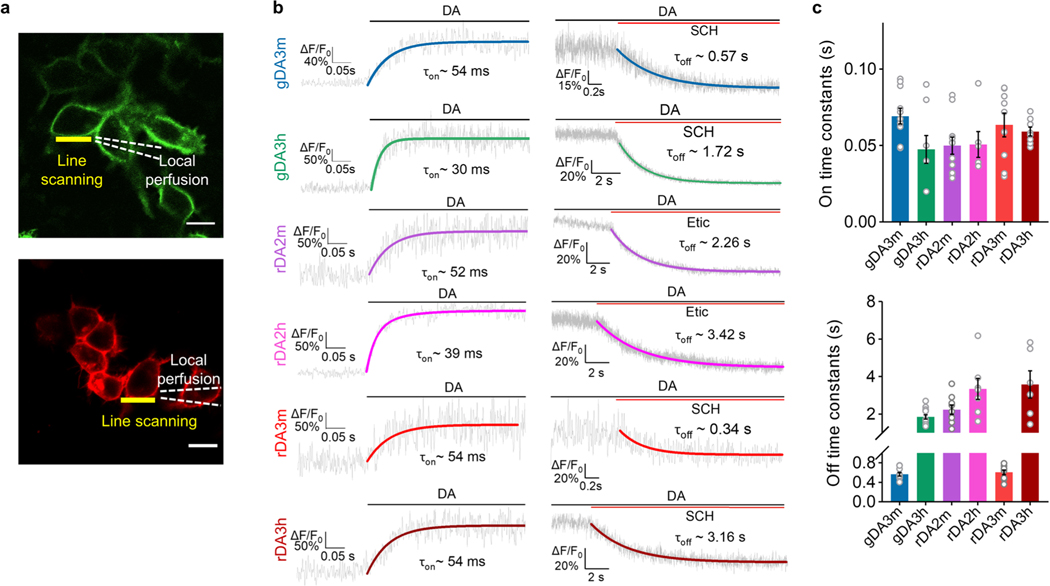 a
Line
scanning
Local
perfusion
Local
perfusion
Line scanning
b
gDA3m
DA
ΔF/F₀
40%
0.05s
τon~ 54 ms
DA
SCH
τoff ~ 0.57 s
ΔF/F₀
15%
0.2s
gDA3h
DA
ΔF/F₀
50%
0.05s
τon~ 30 ms
DA
SCH
τoff ~ 1.72 s
ΔF/F₀
20%
2 s
rDA2m
DA
ΔF/F₀
50%
0.05 s
τon~ 52 ms
DA
Etic
τoff ~ 2.26 s
ΔF/F₀
20%
2 s
rDA2h
DA
ΔF/F₀
50%
0.05 s
τon~ 39 ms
DA
Etic
τoff ~ 3.42 s
ΔF/F₀
20%
2 s
rDA3m
DA
ΔF/F₀
50%
0.05s
τon~ 54 ms
DA
SCH
τoff ~ 0.34 s
ΔF/F₀
20%
0.2s
rDA3h
DA
ΔF/F₀
50%
0.05 s
τon~ 54 ms
DA
SCH
τoff ~ 3.16 s
ΔF/F₀
20%
2 s
c
On time constants (s)
0.10
0.05
0.00
gDA3m
gDA3h
rDA2m
rDA2h
rDA3m
rDA3h
Off time constants (s)
8
6
4
2
0.8
0.4
0.0
gDA3m
gDA3h
rDA2m
rDA2h
rDA3m
rDA3h